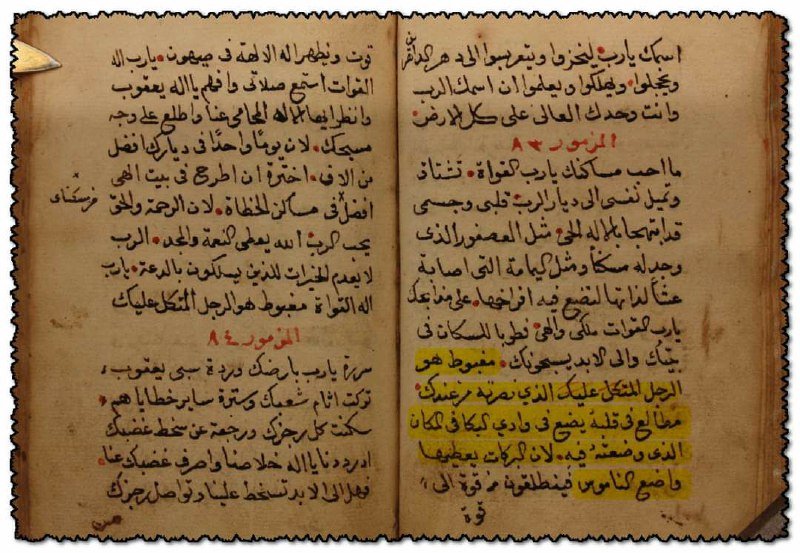 اسمك يارب ليخزوا ويتعربسوا الى دهر الداهرين
ويخجلوا ويهلكوا ويعلموا ان اسمك الرب
وانت وحدك العالى على كل الارض
المزمور ٨٣
ما احب مساكنك يارب القواة تشتاق
وتميل نفسى الى ديار الرب قلبى وجسمى
قد ابتهجا بالاله الحى مثل العصفور الذى
وجد له مسكناً ومثل اليمامة التى اصابة
عشاً لذاتها لتضع فيه افراخها على مذابحك
يارب القوات ملكى والهى فطوبا للسكان فى
بيتك والى الابد يسبحونك مغبوط هو
الرجل المتكل عليك الذى نصرته من عندك
مطالع فى قلبه يضع فى وادي البكا فى المكان
الذى وضعته فيه لان البركات يعطيها
واضع الناموس فينطلقون من قوة الى
قوة
قوت ويظهر اله الالهة فى صهيون يارب اله
القوات استمع صلاتى وافهم يا اله يعقوب
وانظر ايها الاله المحامى عنا واطلع على وجه
مسيحك لان يومًا واحدًا فى ديارك افضل
من الاف اخترة ان اطرح فى بيت الهى
افضل من سكناى
فى مساكن الخطاة لان الرحمة والحق
يحب الرب الله يعطى النعمة والمجد الرب
لا يعدم الخيرات للذين يسلكون بالدعة يارب
اله القواة مغبوط هو الرجل المتكل عليك
المزمور ٨٤
سررة يارب بارضك وردة سبى يعقوب
تركت اثام شعبك وسترة ساير خطاياهم
سكنت كل رجزك ورجعة عن سخط غضبك
ارددنا يا اله خلاصنا واصرف غضبك عنا
فهل الى الابد تسخط علينا وتواصل رجزك
من